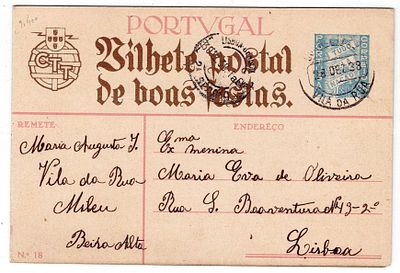 PORTVGAL
CTT
Bilhete postal
de boas festas.
28 DEZ 38
VILA DA RUA
REMETE
Maria Augusta J.
Vila da Rua
Mileu
Beira Alta
N.º 18
ENDERÊÇO
Ema
Ex menina
Maria Eva de Oliveira
Rua S. Boaventura Nº 13-2º
Lisboa